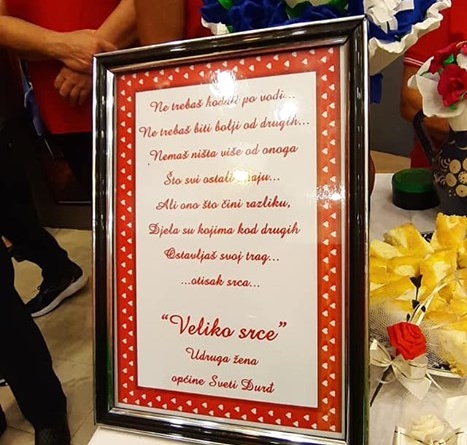 Ne trebaš hodati po vodi...
Ne trebaš biti bolji od drugih...
Nemaš ništa više od onoga
Što svi ostali imaju...
Ali ono što čini razliku,
Djela su kojima kod drugih
Ostavljaš svoj trag...
...otisak srca...
“Veliko srce”
Udruga žena
općine Sveti Đurđ